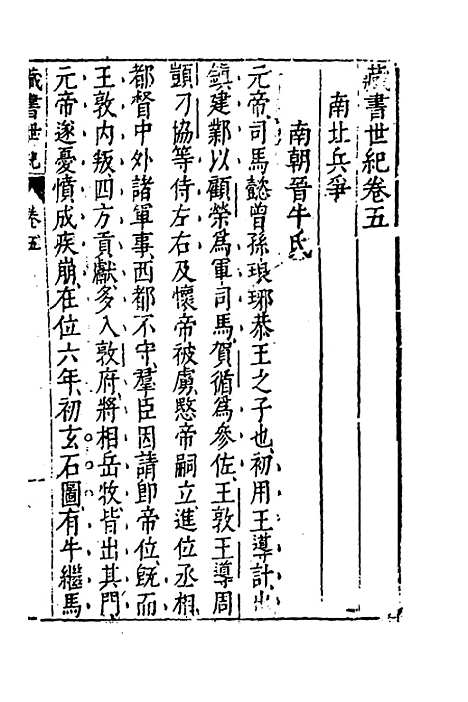 藏書世紀卷五
南北兵爭
南朝晉牛氏
元帝司馬懿曾孫琅琊恭王之子也初用王導計出
鎮建鄴以顧榮爲軍司馬賀循爲參佐王敦王導周
顗刁協等侍左右及懷帝被虜愍帝嗣立進位丞相
都督中外諸軍事西都不守羣臣因請卽帝位旣而
王敦内叛四方貢獻多入敦府將相岳牧皆出其門
元帝遂憂憤成疾崩在位六年初玄石圖有牛繼馬
藏書世紀
卷五
一